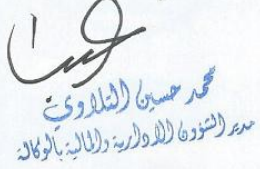 محمد حسين التلاوي
مدير الشؤون الادارية والمالية بالوكالة